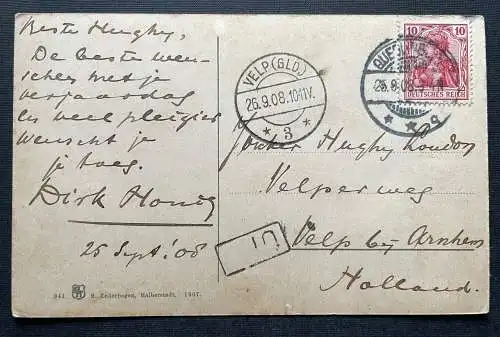 Beste Hughy,
De beste wen-
schen met je
verjaardag
en veel pleizier
wenscht je
je toeg.
Dirk Honig
25 Sept.' 08
VELP (GLD.)
26.9.08.10-11V.
* 3 *
25.9.08
* * a
10 10
DEUTSCHES REICH
Jonker Hughy Loudon
Velperweg
Velp bij Arnhem
Holland.
841 R. Zederbogen, Halberstadt. 1907.